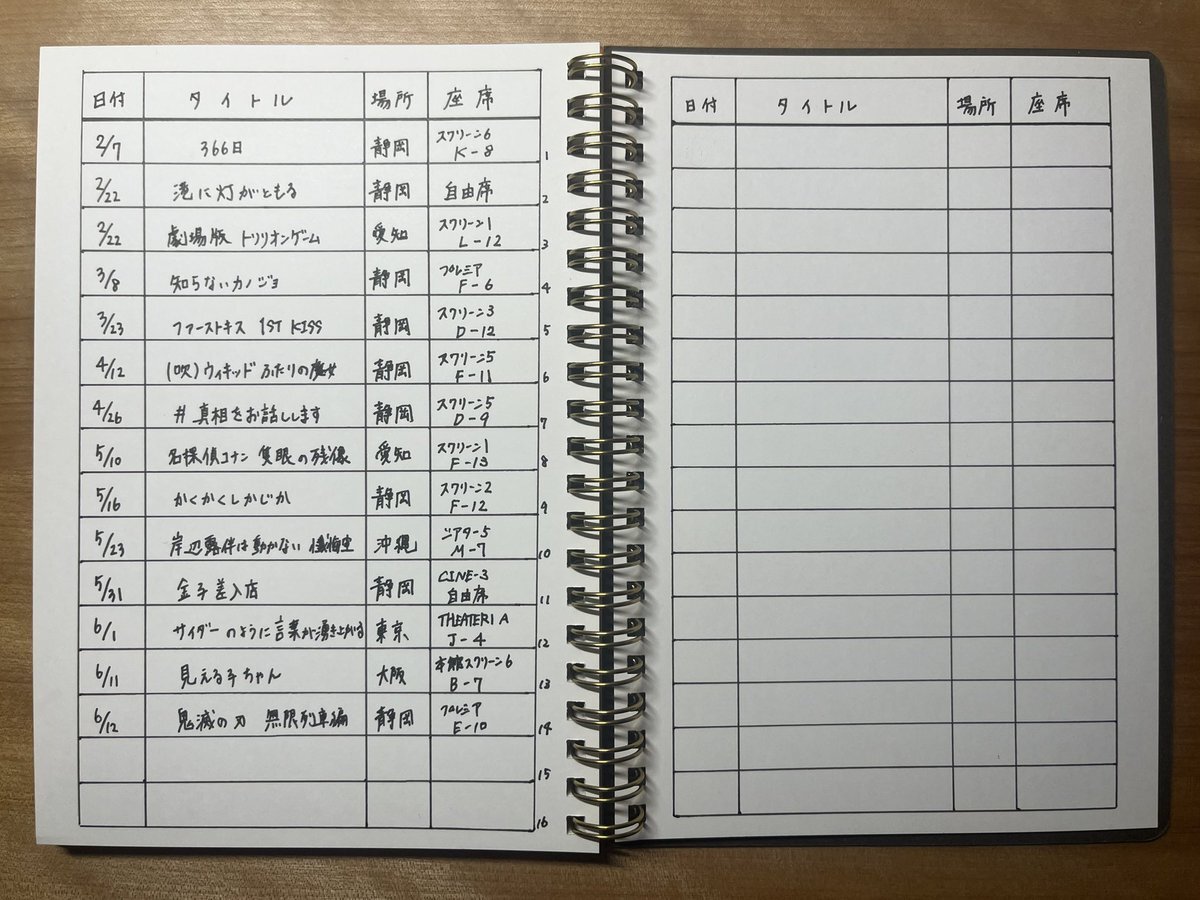 日付 タイトル 場所 座席
2/7 366日 静岡 スクリーン6 K-8 1
2/22 港に灯がともる 静岡 自由席 2
2/22 劇場版 トリリオンゲーム 愛知 スクリーン1 L-12 3
3/8 知らないカノジョ 静岡 プレミア F-6 4
3/23 ファーストキス 1ST KISS 静岡 スクリーン3 D-12 5
4/12 (吹)ウィキッド ふたりの魔女 静岡 スクリーン5 F-11 6
4/26 #真相をお話しします 静岡 スクリーン5 D-9 7
5/10 名探偵コナン 隻眼の残像 愛知 スクリーン1 F-13 8
5/16 かくかくしかじか 静岡 スクリーン2 F-12 9
5/23 岸辺露伴は動かない 懺悔室 沖縄 シアター5 M-7 10
5/31 金子差入店 静岡 CINE-3 自由席 11
6/1 サイダーのように言葉が湧き上がる 東京 THEATER1 A J-4 12
6/11 見える子ちゃん 大阪 本館スクリーン6 B-7 13
6/12 鬼滅の刃 無限列車編 静岡 プレミア E-10 14
15
16
日付 タイトル 場所 座席